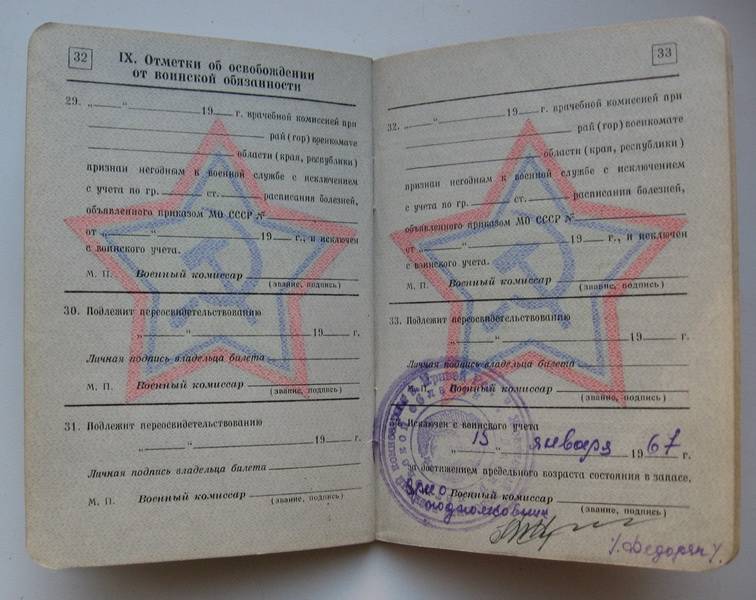 32
IX. Отметки об освобождении
от воинской обязанности
29. „ “ 19 г. врачебной комиссией при
рай (гор) военкомате
области (края, республики)
признан негодным к военной службе с исключением
с учета по гр. ст. расписания болезней,
объявленного приказом МО СССР №
от „ “ 19 г., и исключен
с воинского учета.
М. П. Военный комиссар
(звание, подпись)
30. Подлежит переосвидетельствованию
„ “ 19 г.
Личная подпись владельца билета
М. П. Военный комиссар
(звание, подпись)
31. Подлежит переосвидетельствованию
„ “ 19 г.
Личная подпись владельца билета
М. П. Военный комиссар
(звание, подпись)
33
32. „ “ 19 г. врачебной комиссией при
рай (гор) военкомате
области (края, республики)
признан негодным к военной службе с исключением
с учета по гр. ст. расписания болезней,
объявленного приказом МО СССР №
от „ “ 19 г., и исключен
с воинского учета.
М. П. Военный комиссар
(звание, подпись)
33. Подлежит переосвидетельствованию
„ “ 19 г.
Личная подпись владельца билета
М. П. Военный комиссар
(звание, подпись)
Исключен с воинского учета
„ 15 “ января 1967 г.
за достижением предельного возраста состояния в запасе.
Врио Военный комиссар
подполковник (звание, подпись)
/Федорян/